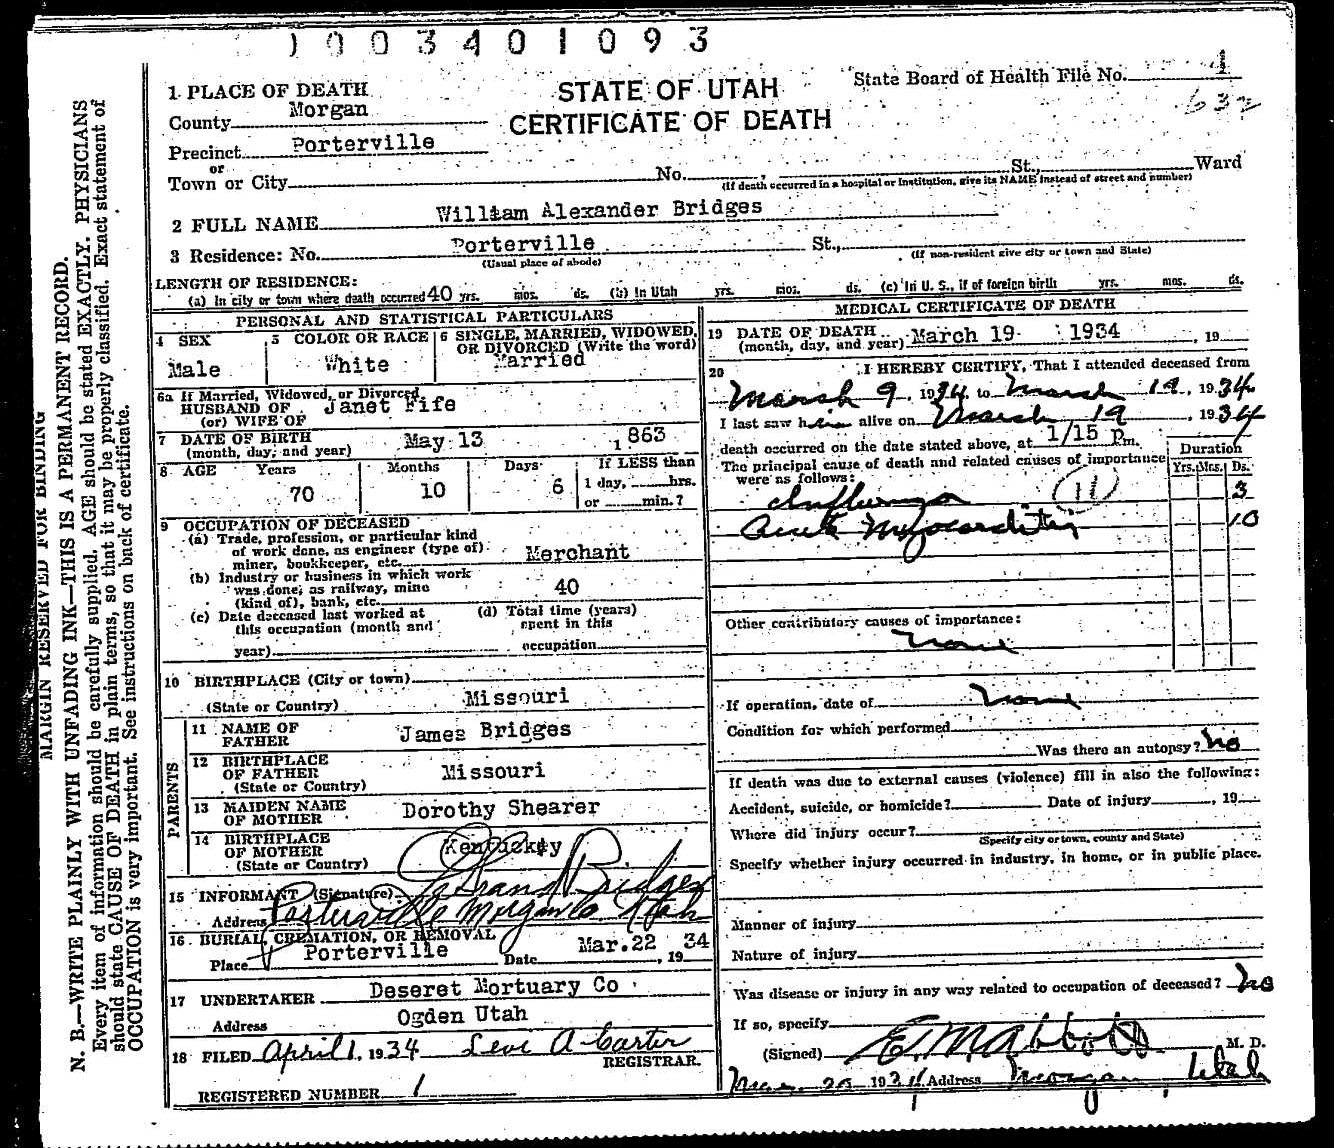 1003401093
STATE OF UTAH
CERTIFICATE OF DEATH
State Board of Health File No. 1
632
1 PLACE OF DEATH
County Morgan
Precinct Porterville
or
Town or City No. St., Ward
(If death occurred in a hospital or institution, give its NAME instead of street and number)
2 FULL NAME William Alexander Bridges
3 Residence: No. Porterville St.,
(Usual place of abode) (If non-resident give city or town and State)
LENGTH OF RESIDENCE:
(a) In city or town where death occurred 40 yrs. mos. ds. (b) In Utah yrs. mos. ds. (c) In U. S., if of foreign birth yrs. mos. ds.
PERSONAL AND STATISTICAL PARTICULARS
4 SEX
Male
5 COLOR OR RACE
White
6 SINGLE, MARRIED, WIDOWED,
OR DIVORCED (Write the word)
Married
6a If Married, Widowed, or Divorced
HUSBAND OF Janet Fife
(or) WIFE OF
7 DATE OF BIRTH
(month, day, and year) May 13 1863
8 AGE Years Months Days If LESS than
70 10 6 1 day, hrs.
or min.?
9 OCCUPATION OF DECEASED
(a) Trade, profession, or particular kind
of work done, as engineer (type of)
miner, bookkeeper, etc. Merchant
(b) Industry or business in which work
was done; as railway, mine
(kind of), bank, etc. 40
(c) Date deceased last worked at
this occupation (month and
year)
(d) Total time (years)
spent in this
occupation
10 BIRTHPLACE (City or town)
(State or Country) Missouri
PARENTS
11 NAME OF
FATHER James Bridges
12 BIRTHPLACE
OF FATHER Missouri
(State or Country)
13 MAIDEN NAME
OF MOTHER Dorothy Shearer
14 BIRTHPLACE
OF MOTHER Kentucky
(State or Country)
15 INFORMANT (Signature) Bridges
Address Porterville Morgan Co Utah
16. BURIAL, CREMATION, OR REMOVAL
Place Porterville Date Mar. 22, 1934
17 UNDERTAKER Deseret Mortuary Co
Address Ogden Utah
18 FILED April 1, 1934 Levi A Carter
REGISTRAR.
REGISTERED NUMBER 1
MEDICAL CERTIFICATE OF DEATH
19 DATE OF DEATH
(month, day, and year) March 19 1934, 19
20 I HEREBY CERTIFY, That I attended deceased from
March 9, 1934, to March 19, 1934
I last saw him alive on March 19, 1934
death occurred on the date stated above, at 1/15 P.m.
The principal cause of death and related causes of importance
were as follows:
Duration
Yrs. Mos. Ds.
Influenza 3
(11)
Acute Myocarditis 10
Other contributory causes of importance:
None
If operation, date of None
Condition for which performed
Was there an autopsy? No
If death was due to external causes (violence) fill in also the following:
Accident, suicide, or homicide? Date of injury , 19
Where did injury occur?
(Specify city or town, county and State)
Specify whether injury occurred in industry, in home, or in public place.
Manner of injury
Nature of injury
Was disease or injury in any way related to occupation of deceased? No
If so, specify
(Signed) E. M. Abbott M. D.
Mar. 20 1934 Address Morgan, Utah
MARGIN RESERVED FOR BINDING
N. B.—WRITE PLAINLY WITH UNFADING INK—THIS IS A PERMANENT RECORD.
Every item of information should be carefully supplied. AGE should be stated EXACTLY. PHYSICIANS
should state CAUSE OF DEATH in plain terms, so that it may be properly classified. Exact statement of
OCCUPATION is very important. See instructions on back of certificate.